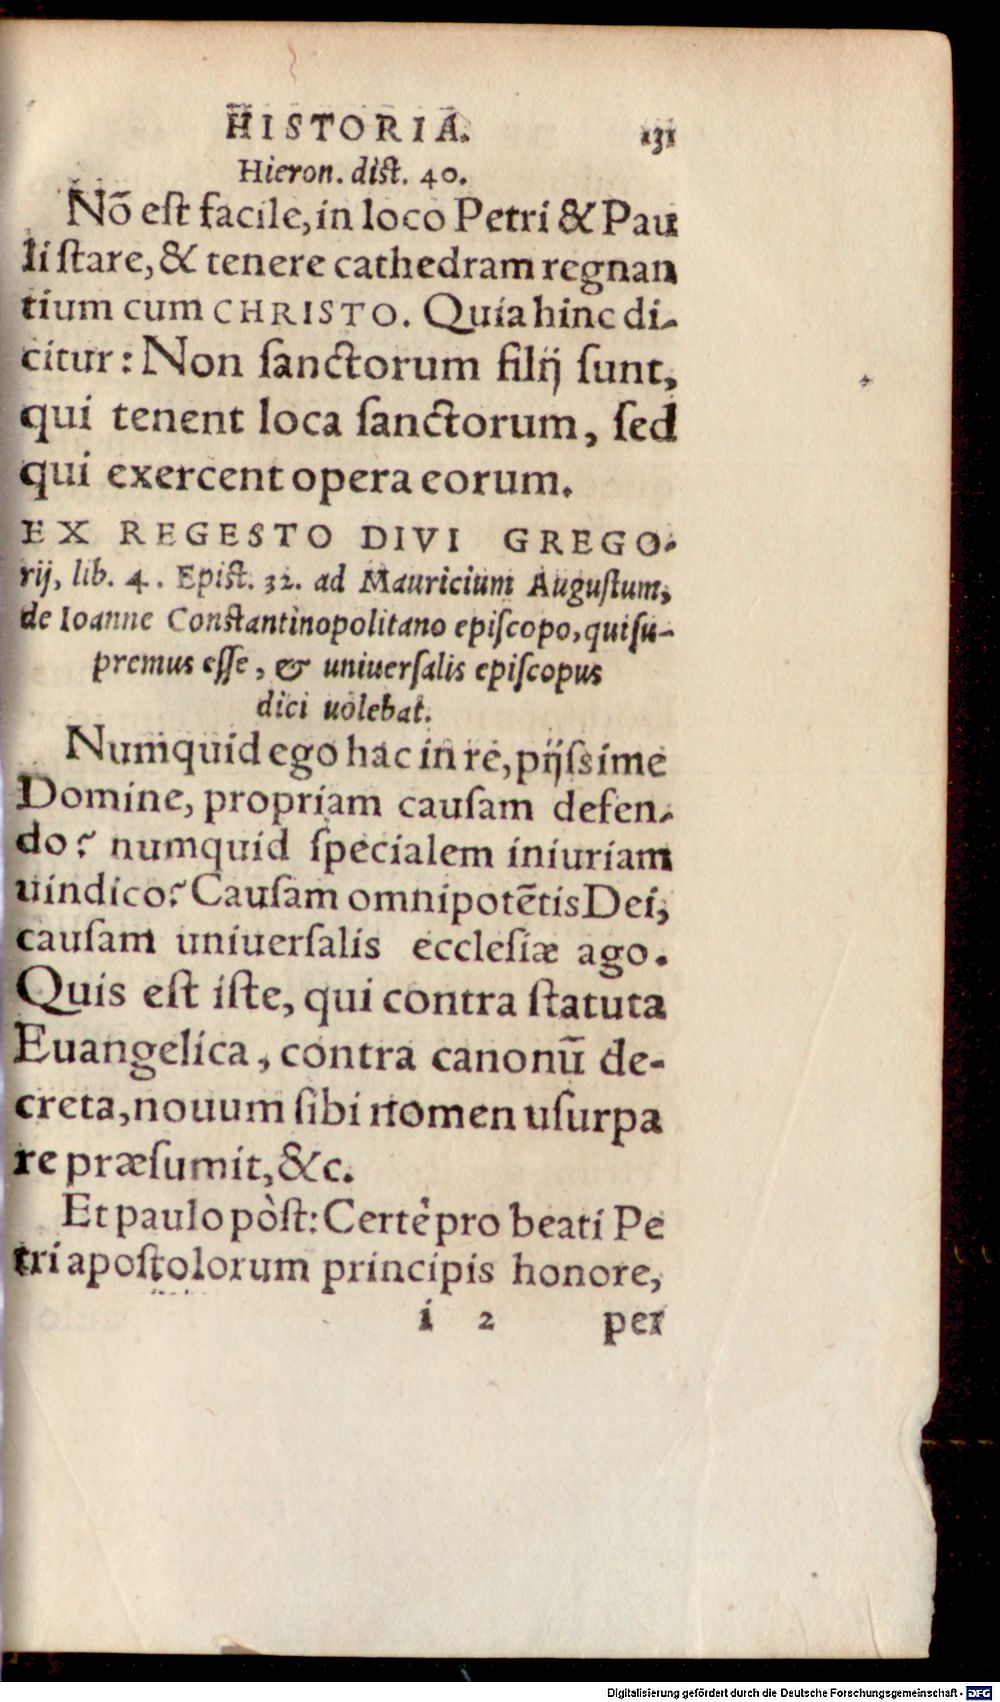 HISTORIA. 131
Hieron. dist. 40.
Nō est facile, in loco Petri & Pau
li stare, & tenere cathedram regnan
tium cum CHRISTO. Quia hinc di-
citur: Non sanctorum filij sunt,
qui tenent loca sanctorum, sed
qui exercent opera eorum.
EX REGESTO DIVI GREGO-
rij, lib. 4. Epist. 32. ad Mauricium Augustum,
de Ioanne Constantinopolitano episcopo, qui su-
premus esse, & uniuersalis episcopus
dici uolebat.
Numquid ego hac in re, pijssime
Domine, propriam causam defen-
do? numquid specialem iniuriam
uindico? Causam omnipotētis Dei,
causam uniuersalis ecclesiæ ago.
Quis est iste, qui contra statuta
Euangelica, contra canonū de-
creta, nouum sibi nomen usurpa
re præsumit, &c.
Et paulo pòst: Certè pro beati Pe
tri apostolorum principis honore,
i 2 per
Digitalisierung gefördert durch die Deutsche Forschungsgemeinschaft - DFG